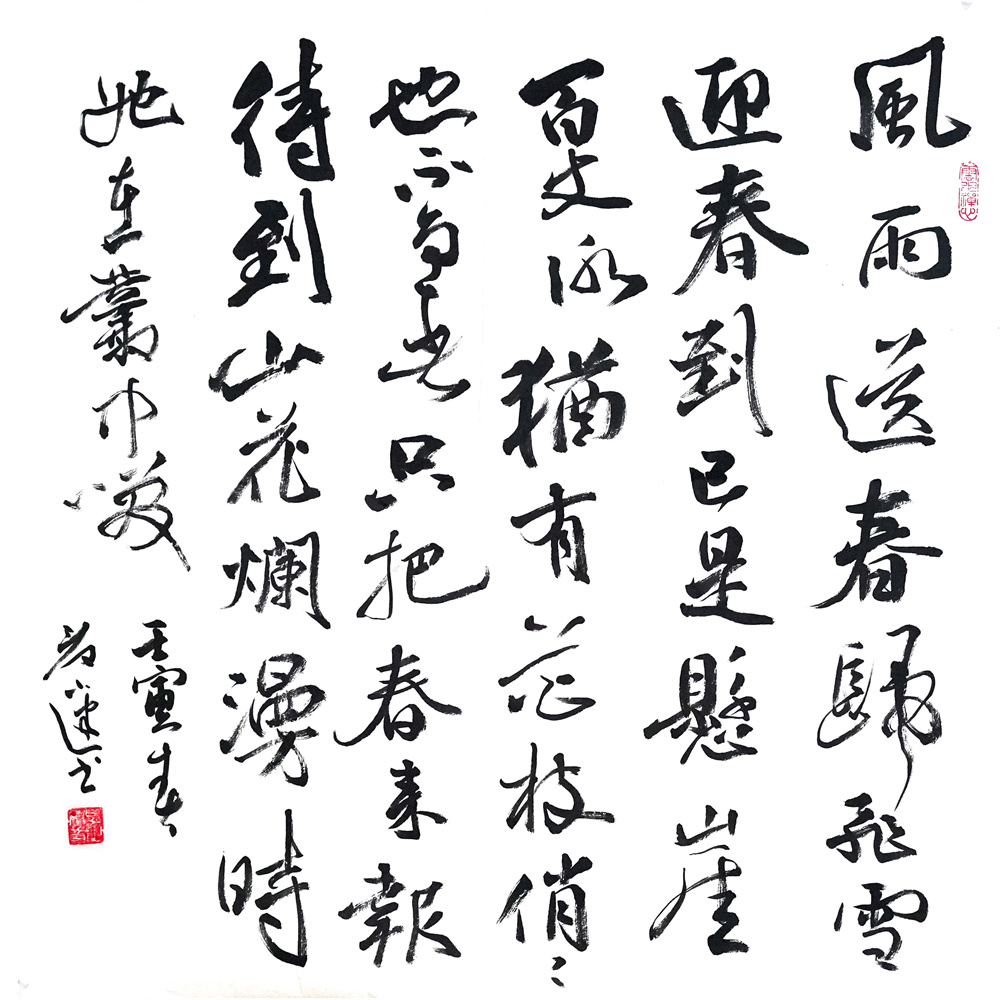 風雨送春歸飛雪
迎春到已是懸崖
百丈冰猶有花枝俏〻
也不爭春只把春來報
待到山花爛漫時
她在叢中咲
壬寅春